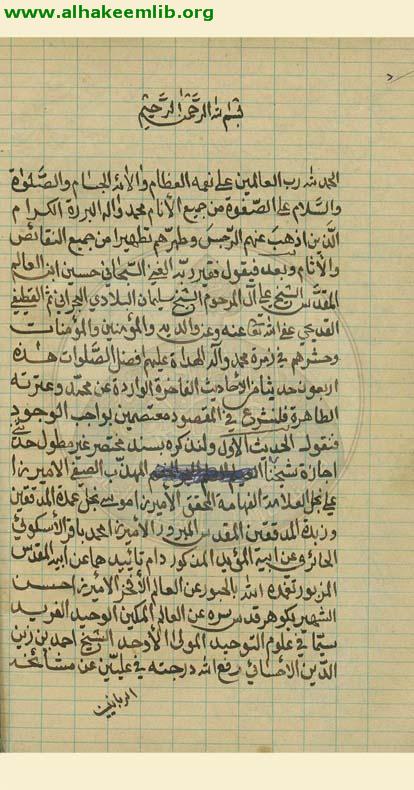 www.alhakeemlib.org
بسم الله الرحمن الرحيم
الحمد لله رب العالمين على نعمه العظام والآئه الجسام والصلوة
والسلام على الصفوة من جميع الأنام محمد وآله البررة الكرام
الذين اذهب عنهم الرجس وطهرهم تطهيرا من جميع النقائص
والآثام وبعد فيقول فقير ربه الغني السبحاني حسين ابن العالم
المقدس الشيخ علي آل المرحوم الشيخ سليمان البلادي البحراني ثم القطيفي
القديحي عفى الله تعالى عنه وعن والديه والمؤمنين والمؤمنات
وحشرهم في زمرة محمد وآله الهداة عليهم افضل الصلوات هذه
اربعون حديثا من الأحاديث الفاخرة الواردة عن محمد وعترته
الطاهرة فلنشرع في المقصود معتصمين بواجب الوجود
فنقول الحديث الأول ولنذكره بسند مختصر غير مطول حدثني
اجازة شيخنا المهذب الصفي الاميرزا
علي نجل العلامة الفهامة المحقق الأميرزا موسى نجل عمدة المدققين
وزبدة المدققين المقدس المبرور الأميرزا محمد باقر الأسكوئي
الحائري عن ابيه المؤيد المذكور دام تأييدهما عن ابيه المقدس
المزبور تغمده الله بالحبور عن العالم الأفخر الأميرزا حسن
الشهير بكوهر قدس سره عن العالم المكين الوحيد الفريد
سيما في علوم التوحيد المولى الأوحد الشيخ احمد بن زين
الدين الأحسائي رفع الله درجته في عليين عن مشائخه
الربانيين